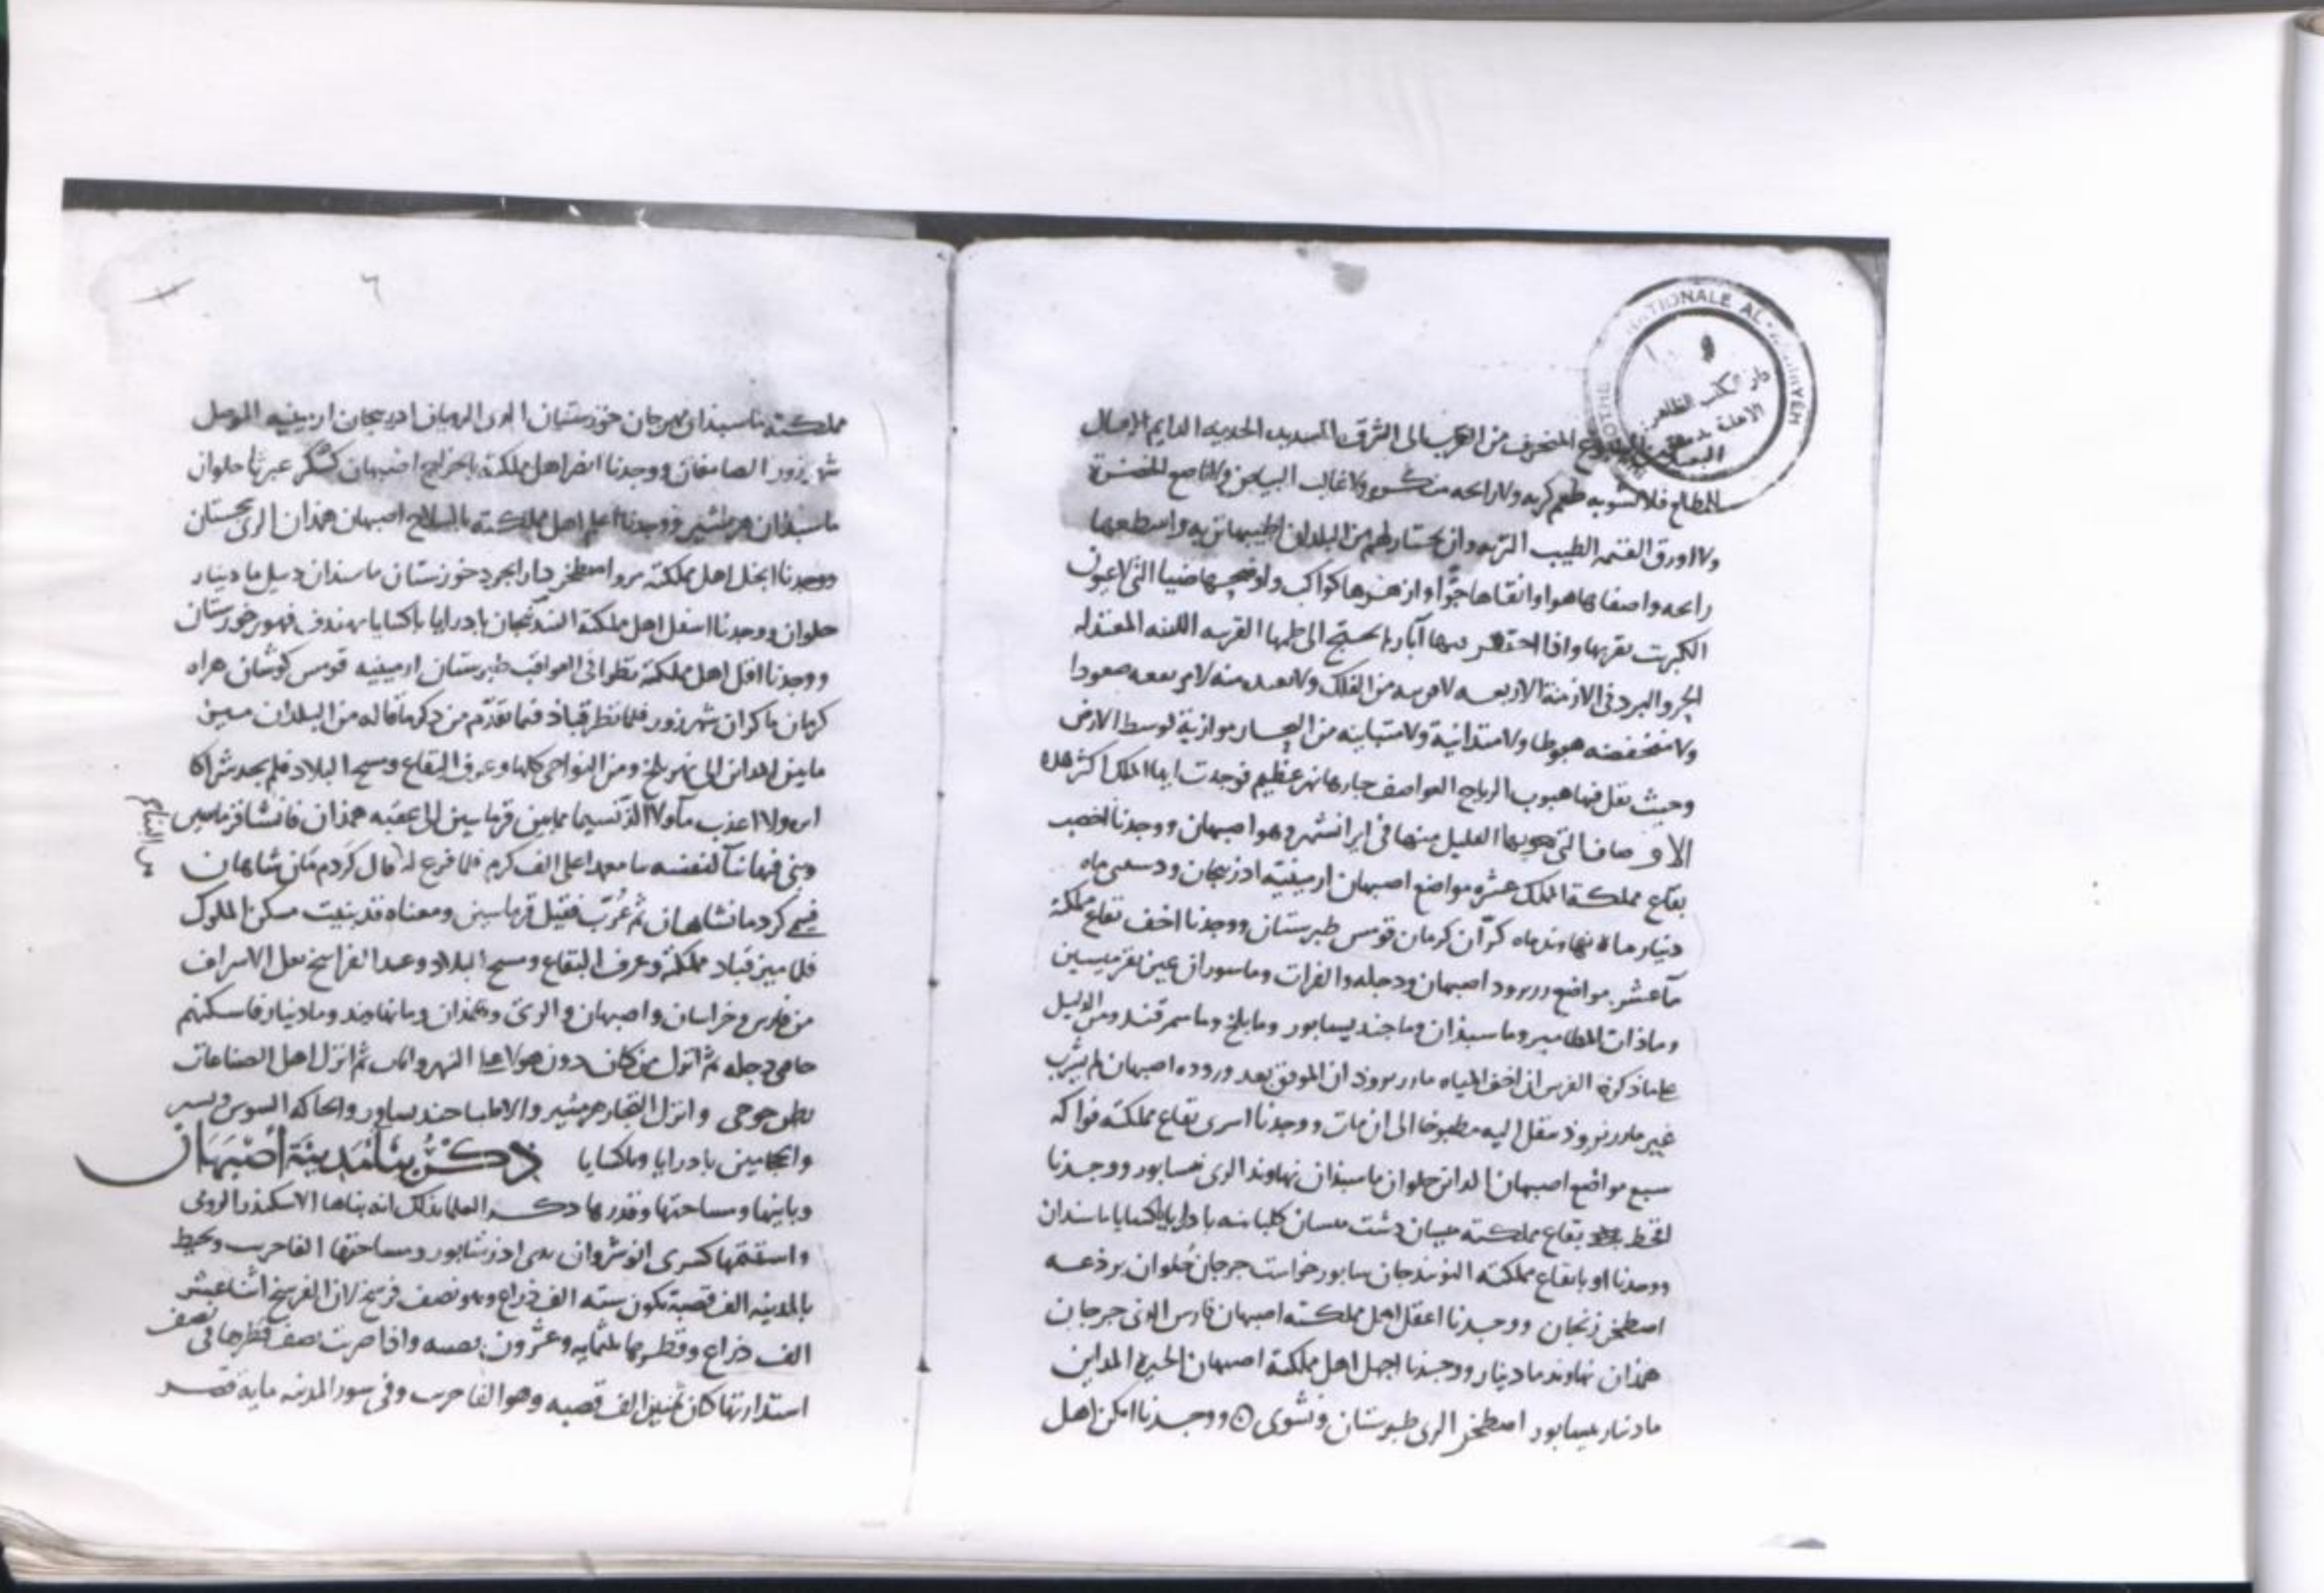 NATIONALE AL-
دار الكتب الظاهرية
الاهلية بدمشق
المنحرف من الغرب الى الشرق الشديد الجرية الدايم الاتصال
بالمطالع فلا تشوبه طعم كريه ولا رايحه منكره ولا غالب البياض ولا ناصع الخضرة
ولا اورق القتمه الطيب التربه وان يختار لهم من البلدان اطيبها تربه واسطعها
رايحه واصفاها هواء وانقاها جوا وازهرها كواكب واوضحها ضياء التي لا عيون
الكبريت بقربها واذا احتفر بها آبار لم يحتج الى طيها القريبه اللينه المعتدله
الحر والبرد في الازمنة الاربعه لا قريبه من الفلك ولا بعيده منه لا مرتفعه صعودا
ولا منخفضه هبوطا ولا متدانية ولا متباينه من البحار موازية لوسط الارض
وحيث تقل فيها هبوب الرياح العواصف جارها نهر عظيم فوجدت ايها الملك اكثر هذه
الاوصاف التي تهويها القليل منها في ايرانشهر وهو اصبهان ووجدنا اخصب
بقاع مملكة الملك عشره مواضع اصبهان ارمينيه اذربيجان ودستبى ماه
دينار ماة نهاوند ماه كرآن كرمان قومس طبرستان ووجدنا اخف بقاع مملكة
ماء عشر مواضع زرنرود اصبهان ودجله والفرات وماسوران عين بقرميسين
وماذات المطامير وماسبذان وما جنديسابور وما بلخ وما سمرقند ومن الدليل
على ما ذكره الفرس ان اخف المياه ما زرنروذ ان الموفق بعد وروده اصبهان لم يشرب
غير ما زرنروذ منقل اليه مطبوخا الى ان مات ووجدنا اسرى بقاع مملكته فواكه
سبع مواضع اصبهان المداين حلوان ماسبذان نهاوند الري نيسابور ووجدنا
اقحط بقاع مملكته ميسان دشت ميسان كلبانيه بادرايا باكسايا ماسبذان
ووجدنا اوبا بقاع مملكته النوبندجان سابور خواست جرجان حلوان برذعه
اصطخر زنجان ووجدنا اعقل اهل مملكته اصبهان فارس الري جرجان
همذان نهاوند ما دينار ووجدنا اجمل اهل مملكة اصبهان الحيره المداين
ما دينار نيسابور اصطخر الري طبرستان ونشوى ووجدنا امكن اهل
٦
مملكته ماسبذان مهرجان خوزستان الري الرويان اذربيجان ارمينيه الموصل
شهرزور الصامغان ووجدنا انض اهل مملكة بالخراج اصبهان كسكر عبرتا حلوان
ماسبذان هرمشير ووجدنا اعلم اهل مملكته بالسلاح اصبهان همذان الري سجستان
ووجدنا ابخل اهل مملكته مرو اصطخر دارابجرد خوزستان ماسبذان دبيل ما دينار
حلوان ووجدنا اسفل اهل مملكته البندنيجان بادرايا باكسايا بهندف فهور خوزستان
ووجدنا اقل اهل مملكته نظرا في العواقب طبرستان ارمينيه قومس كوشان هراه
كرمان ماكران شهرزور فلما نظر قباذ فيما تقدم من ذكر ما قاله من البلدان ميز
ما بين المداين الى نهر بلخ ومن النواحي كلها وعرف البقاع ومسح البلاد فلم يجد شراكا
ولا اعذب ماء ولا الذ نسيما مما بين قرماسين الى عقبه همذان فانشا قرماسين
وبنى فيها بنآ لنفسه على الف كرم فلما فرغ قال كردم مان شاهان
فسمي كردمانشاهان ثم عرب فقيل قرماسين ومعناه قد بنيت مسكن الملوك
فلما ميز قباد مملكته وعرف البقاع ومسح البلاد وعد الفراسخ نقل الاشراف
من فارس وخراسان واصبهان والري وهمذان وما نهاوند وما دينار فاسكنهم
حافتي دجله ثم انزل من كان دون هولا على النهروانات ثم انزل اهل الصناعات
بطن جوخى وانزل التجار هرمشير والاطبا جنديسابور والحاكه السوس وتستر
والحجامين بادرايا وباكسايا ذكر بنا مدينة اصبهان
وبانيها ومساحتها وقدرها ذكر العلما بذلك انه بناها الاسكندر الرومي
واستتمها كسرى انوشروان على اذرشابور ومساحتها الفا جريب ويحيط
بالمدينه الف قصبة تكون سته الف ذراع وهو نصف فرسخ لان الفرسخ اثنا عشر
الف ذراع وقطرها ثلثمايه وعشرون قصبه واذا ضربت نصف قطرها في نصف
استدارتها كان ثمنين الف قصبه وهو الفا جريب وفي سور المدينه مايه قصر